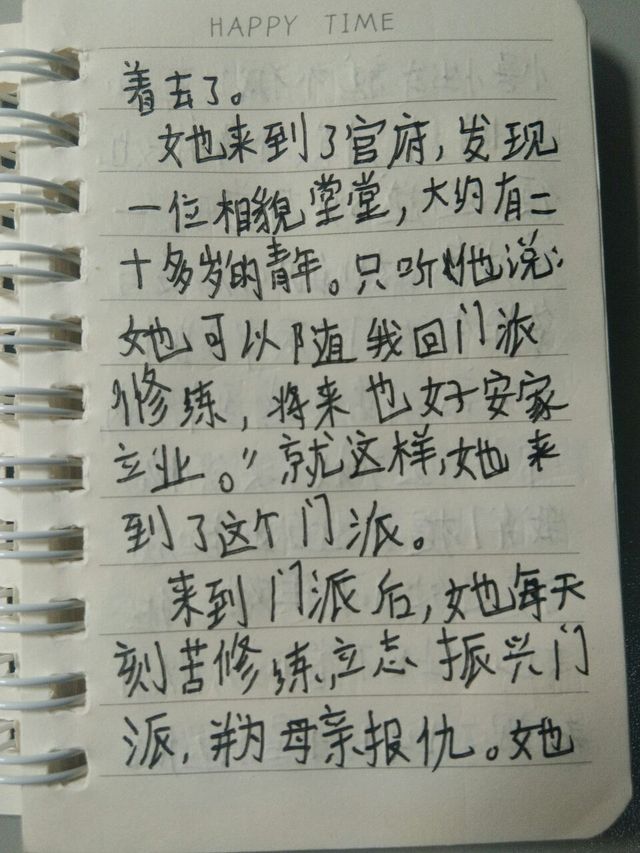 HAPPY TIME
着去了。
她来到了官府，发现
一位相貌堂堂，大约有二
十多岁的青年。只听他说：
她可以随我回门派
修练，将来也好安家
立业。”就这样，她来
到了这个门派。
来到门派后，她每天
刻苦修练，立志振兴门
派，并为母亲报仇。她